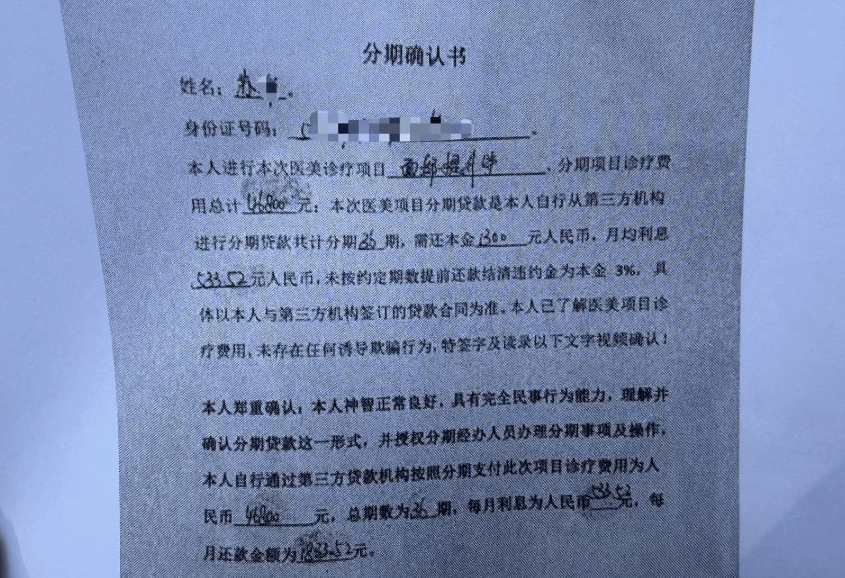 分期确认书
姓名：
身份证号码：
本人进行本次医美诊疗项目面部提升，分期项目诊疗费
用总计46800元；本次医美项目分期贷款是本人自行从第三方机构
进行分期贷款共计分期36期，需还本金1300元人民币，月均利息
533.52元人民币，未按约定期数提前还款结清违约金为本金 3%，具
体以本人与第三方机构签订的贷款合同为准。本人已了解医美项目诊
疗费用，未存在任何诱导欺骗行为，特签字及读录以下文字视频确认！
本人郑重确认：本人神智正常良好，具有完全民事行为能力，理解并
确认分期贷款这一形式，并授权分期经办人员办理分期事项及操作，
本人自行通过第三方贷款机构按照分期支付此次项目诊疗费用为人
民币46800元，总期数为36期，每月利息为人民币533.52元，每
月还款金额为1833.52元。